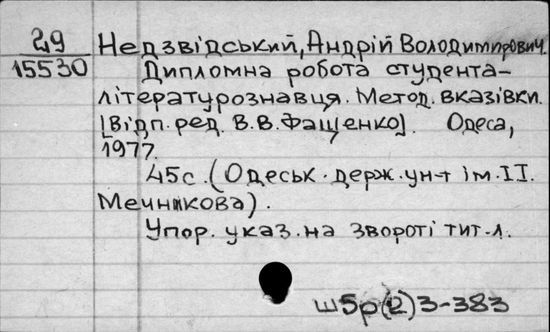 29
15530
Недзвідський, Андрій Володимирович.
Дипломна робота студента-
літературознавця. Метод. вказівки.
[Відп. ред. В.В. Фащенко]. Одеса,
1977.
45с. (Одеськ. держ. ун-т ім. І.І.
Мечникова).
Упор. указ. на звороті тит. л.
ш5р(2)3-383